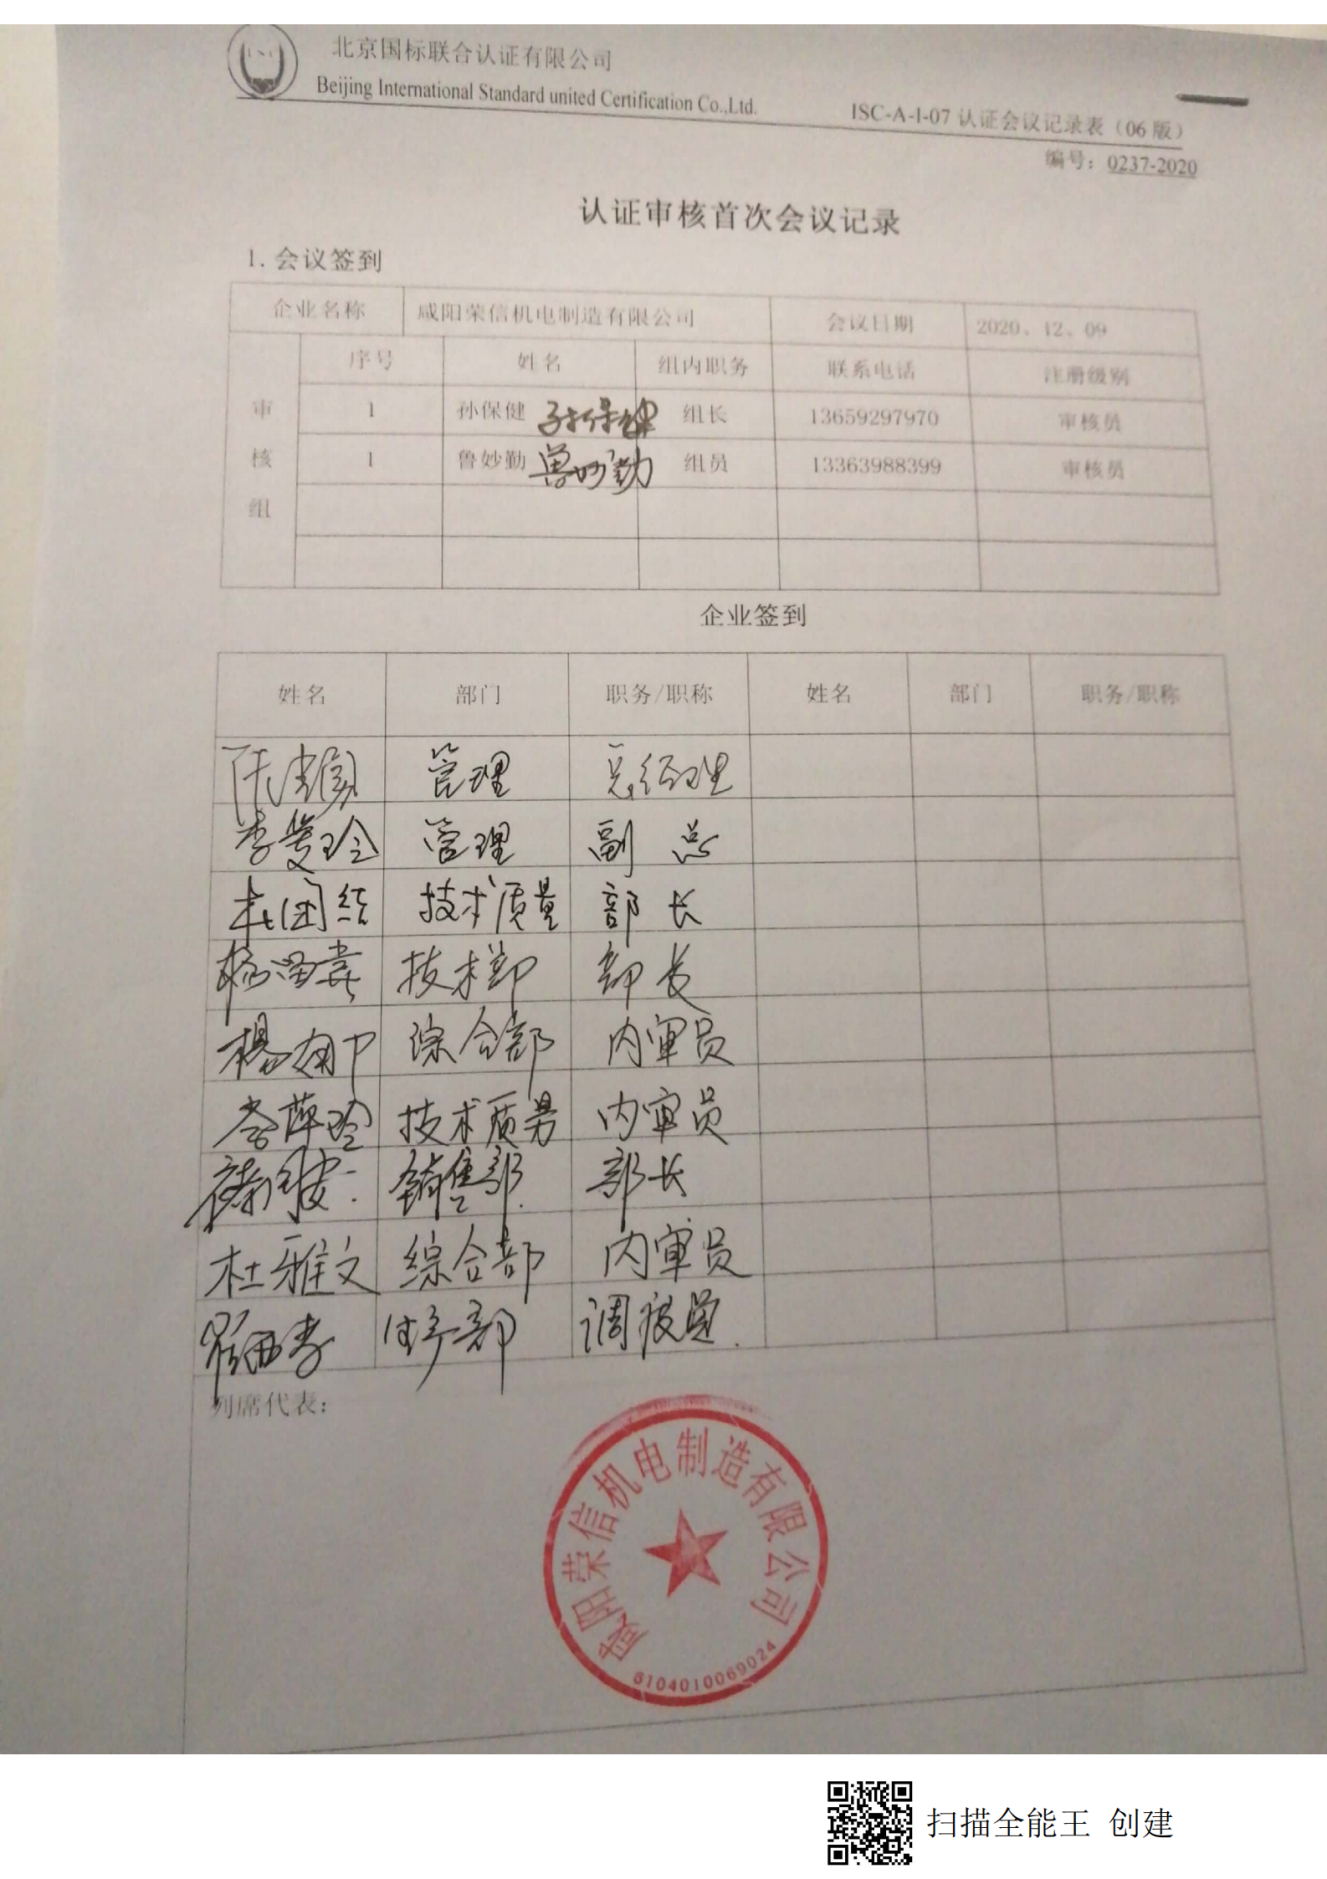 北京国标联合认证有限公司
Beijing International Standard united Certification Co.,Ltd.
ISC-A-I-07 认证会议记录表（06 版）
编号：0237-2020
认证审核首次会议记录
1. 会议签到
企业名称 咸阳荣信机电制造有限公司 会议日期 2020、12、09
审核组 序号 姓名 组内职务 联系电话 注册级别
1 孙保健 孙保健 组长 13659297970 审核员
1 鲁妙勤 鲁妙勤 组员 13363988399 审核员
企业签到
姓名 部门 职务/职称 姓名 部门 职务/职称
管理 总经理
管理 副总
技术质量 部长
技术部 部长
综合部 内审员
李萍玲 技术质量 内审员
销售部 部长
杜雅文 综合部 内审员
列席代表：
咸阳荣信机电制造有限公司
6104010069024
扫描全能王 创建